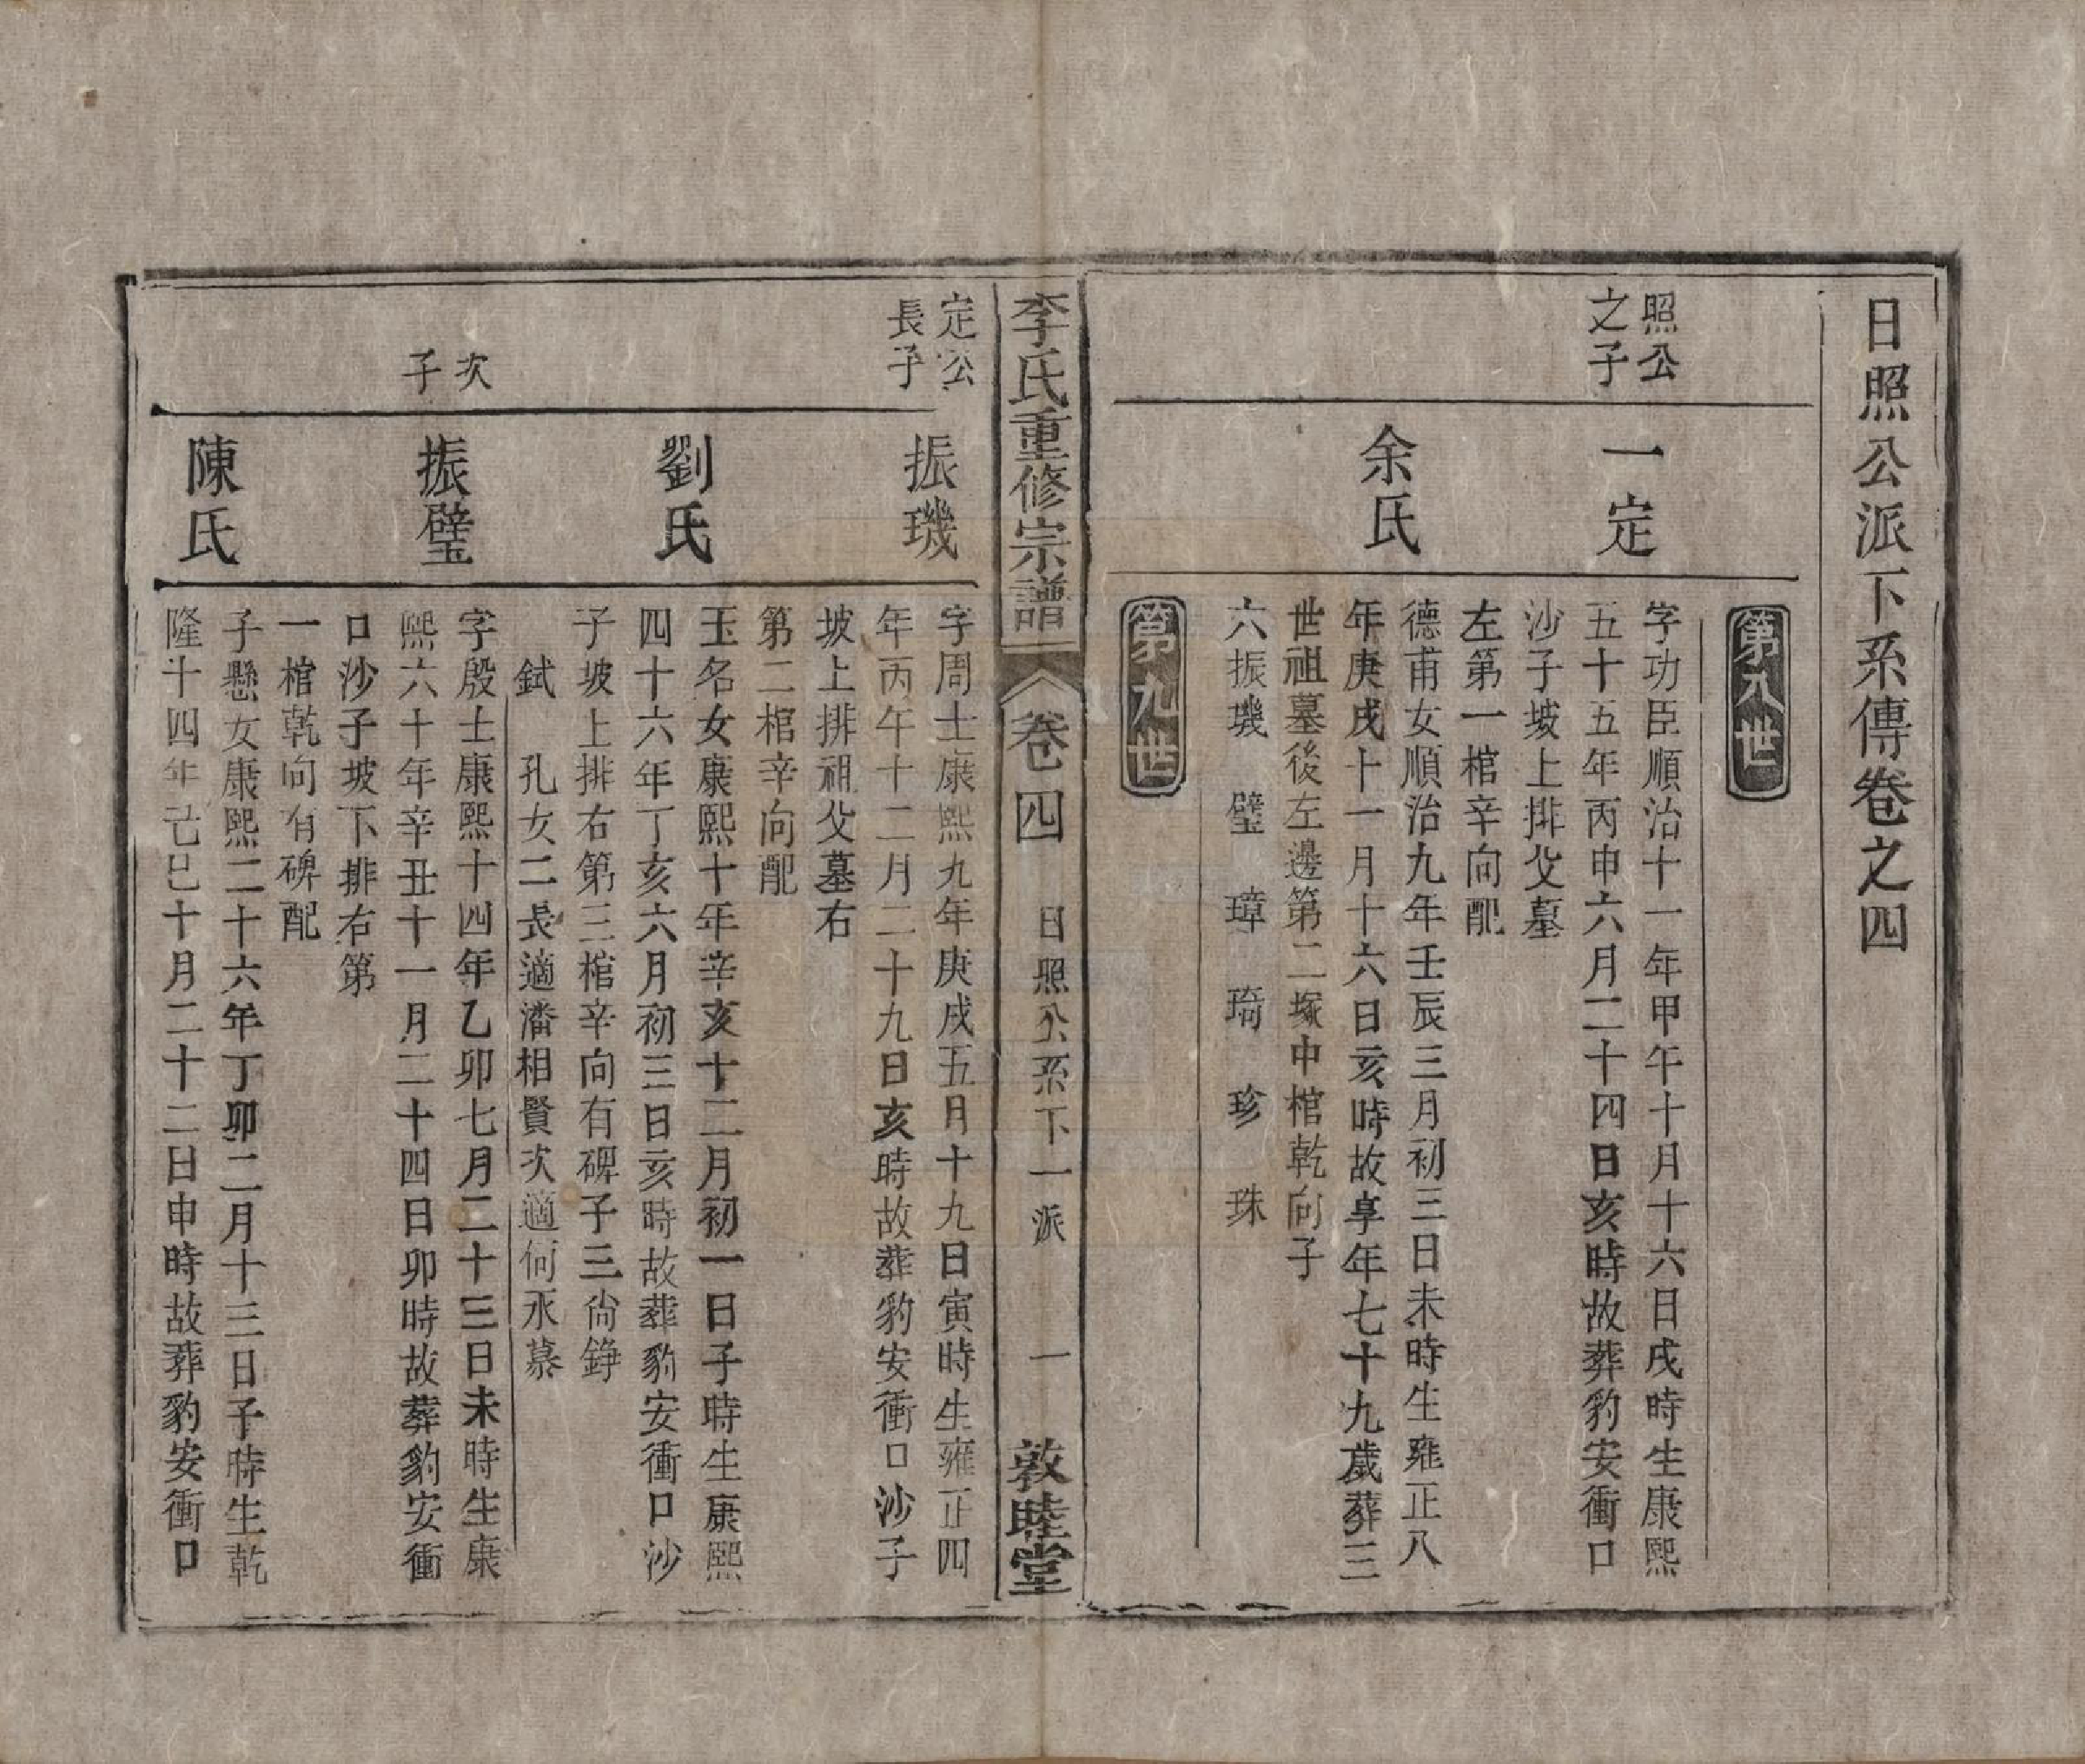 日照公派下系傳卷之四
第八世
照公
之子
一定
字功臣順治十一年甲午十月十六日戌時生康熙
五十五年丙申六月二十四日亥時故葬豹安衝口
沙子坡上排父墓
左第一棺辛向配
余氏
德甫女順治九年壬辰三月初三日未時生雍正八
年庚戌十一月十六日亥時故享年七十九歲葬三
世祖墓後左邊第二塚中棺乾向子
六振璣 璧 璋 琦 珍 珠
第九世
李氏重修宗譜
卷四
日照公系下一派
一
敦睦堂
定公
長子
振璣
字周士康熙九年庚戌五月十九日寅時生雍正四
年丙午十二月二十九日亥時故葬豹安衝口沙子
坡上排祖父墓右
第二棺辛向配
劉氏
玉名女康熙十年辛亥十二月初一日子時生康熙
四十六年丁亥六月初三日亥時故葬豹安衝口沙
子坡上排右第三棺辛向有碑子三尙錚
鉽 孔女二長適潘相賢次適何永慕
次
子
振璧
字殷士康熙十四年乙卯七月二十三日未時生康
熙六十年辛丑十一月二十四日卯時故葬豹安衝
口沙子坡下排右第
一棺乾向有碑配
陳氏
子懸女康熙二十六年丁卯二月十三日子時生乾
隆十四年己巳十月二十二日申時故葬豹安衝口